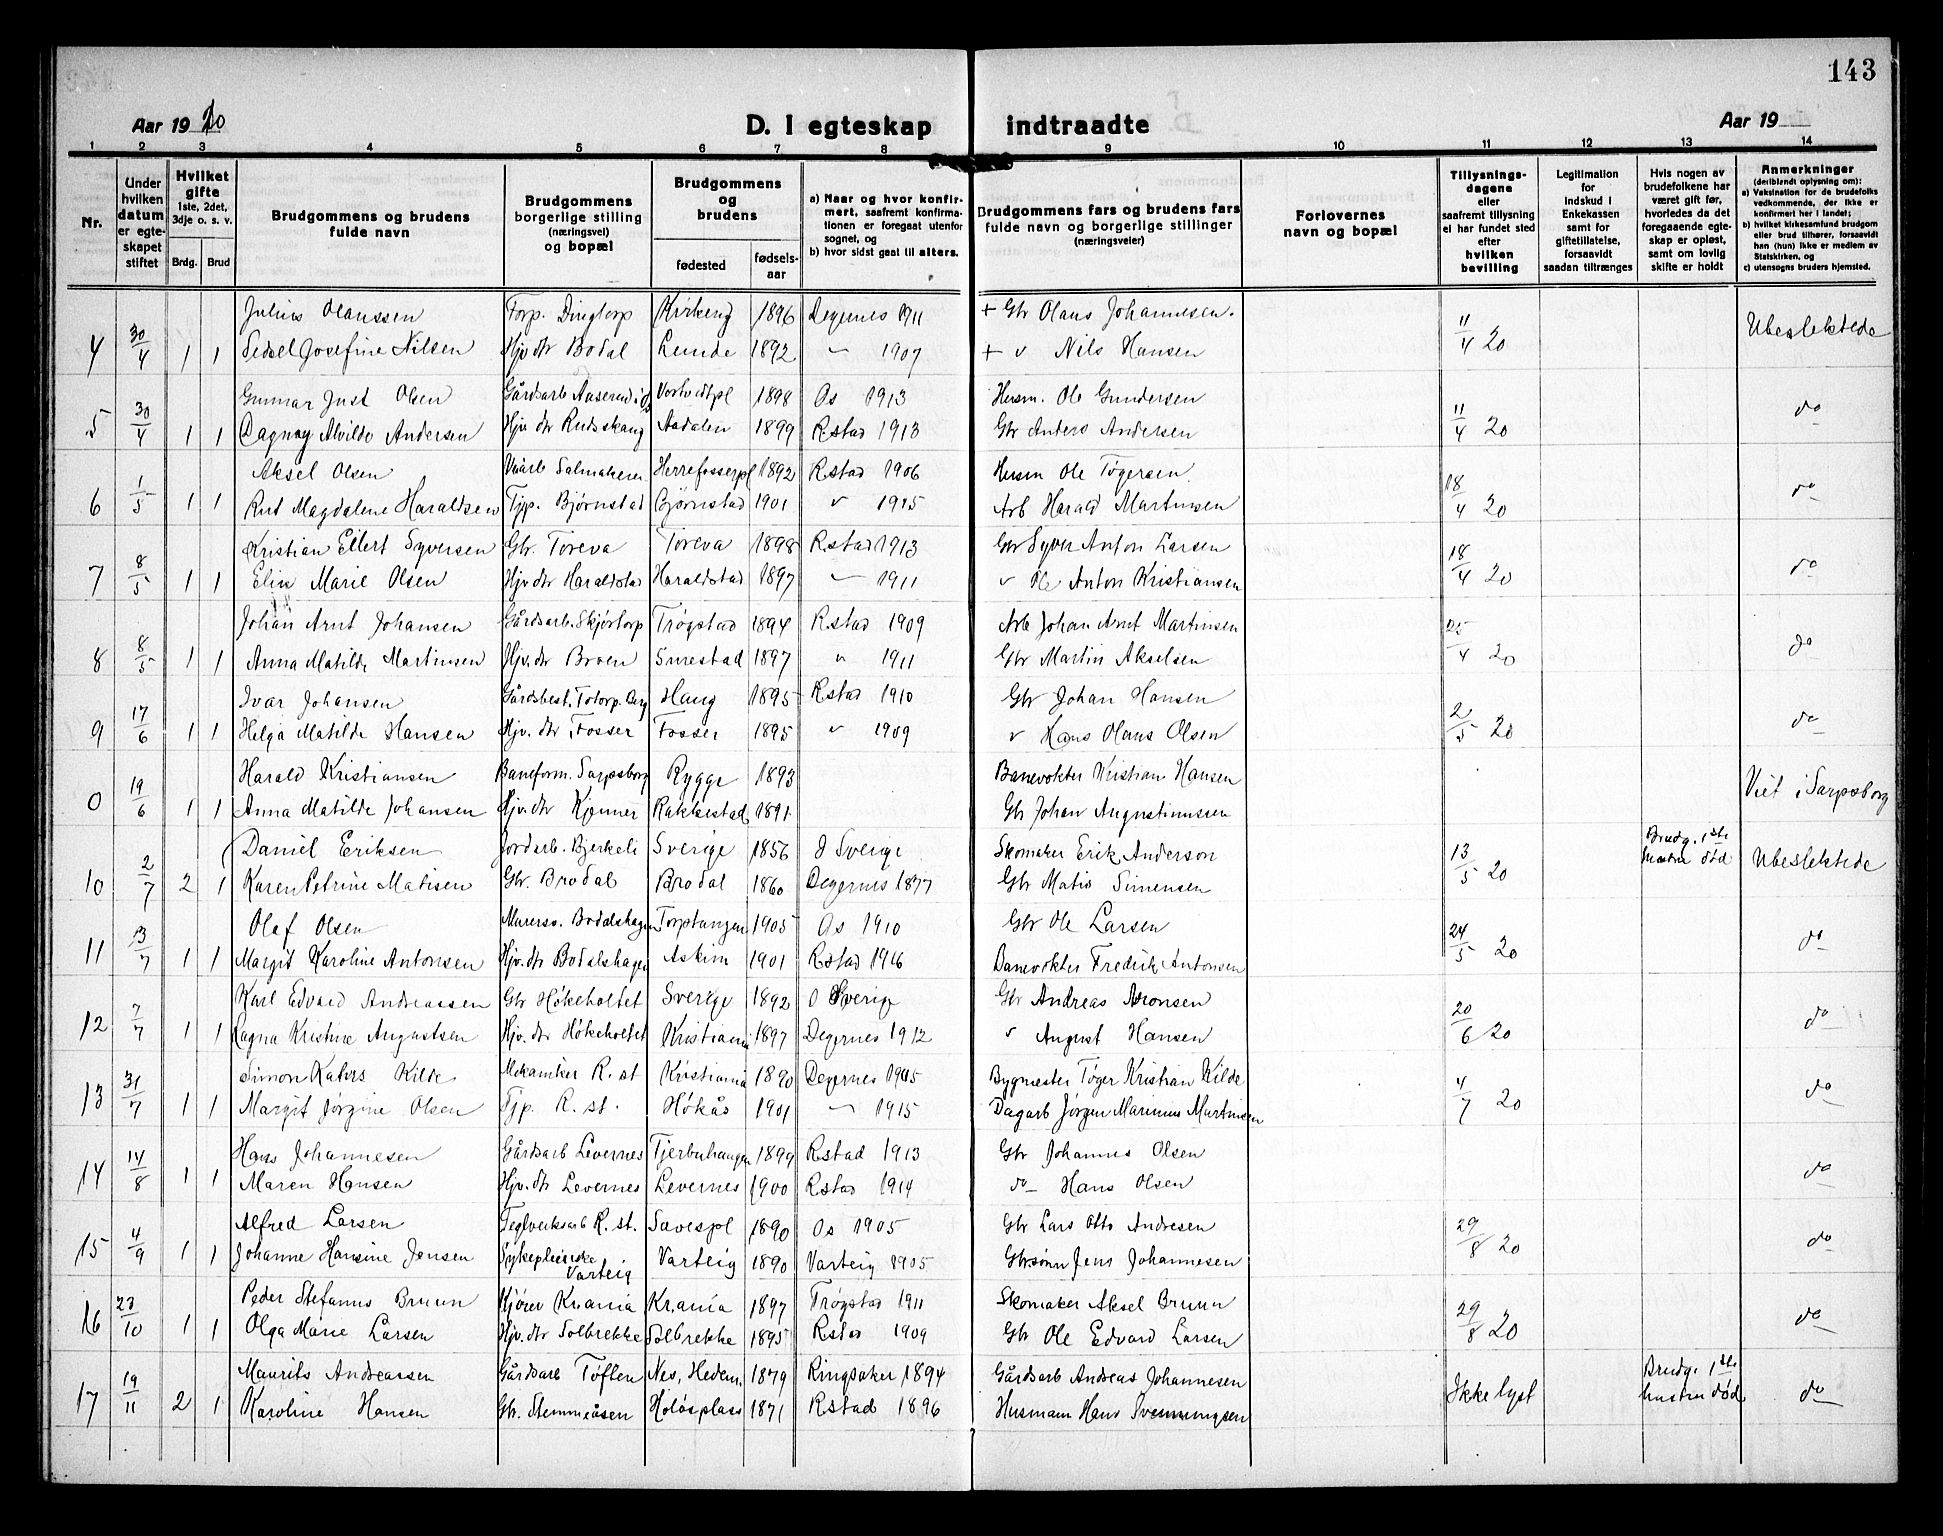 143
Aar 1920
D. I egteskap indtraadte
Aar 19
1 2 3 4 5 6 7 8 9 10 11 12 13 14
Nr.
Under hvilken datum er egteskapet stiftet
Hvilket gifte 1ste, 2det, 3dje o. s. v.
Brdg. Brud
Brudgommens og brudens fulde navn
Brudgommens og brudens borgerlige stilling (næringsvei) og bopæl
Brudgommens og brudens
fødested fødsels-aar
a) Naar og hvor konfirmert, saafremt konfirmationen er foregaat utenfor sognet, og
b) hvor sidst gaat til alters.
Brudgommens fars og brudens fars fulde navn og borgerlige stillinger (næringsveier)
Forlovernes navn og bopæl
Tillysnings-dagene eller saafremt tillysning ei har fundet sted efter hvilken bevilling
Legitimation for indskud i Enkekassen samt for giftetilladelse, forsaavidt saadan tiltrænges
Hvis nogen av brudefolkene har været gift før, hvorledes da det foregaaende egteskap er opløst, samt om lovlig skifte er holdt
Anmerkninger (deriblandt oplysning om):
a) Vaksination for de brudefolks vedkommende, der ikke er konfirmert her i landet;
b) hvilket kirkesamfund brudgom eller brud tilhører, forsaavidt han (hun) ikke er medlem av Statskirken, og
c) utensogns bruders hjemsted.
Julius Olaussen Torp. Dingtorp Kirkeng 1896 Degernes 1911 + Gbr Olaus Johannesen.
4 30/4 1 1 Sidsel Josefine Nilsen Hjv. dtr Bodal Lunde 1892 " 1907 + " Nils Hansen 11/4 20 Ubeslektede
Gunnar Just Olsen Gårdsarb Aaserud i Os 1898 Os 1913 Husm. Ole Gundersen
5 30/4 1 1 Dagny Alvilde Andersen Hjv dtr Rudsskaug Aadalen 1899 Rstad 1913 Gbr Anders Andersen 11/4 20 do
Aksel Olsen Herrefosserpl 1892 Rstad 1906 Husm Ole Tøgersen.
6 1/5 1 1 Rut Magdalene Haraldsen Tjp. Bjørnstad Bjørnstad 1901 " 1915 Arb Harald Martinsen 18/4 20 do
Kristian Ellert Syversen Gbr. Toreva Toreva 1898 Rstad 1913 Gbr Syver Anton Larsen
7 8/5 1 1 Elin Marie Olsen Hjv dtr Haraldstad Haraldstad 1897 " 1911 " Ole Anton Kristiansen 18/4 20 do
Johan Arnt Johansen Gårdsarb. Skjørtorp Trøgstad 1894 Rstad 1909 Arb Johan Arnt Martinsen
8 8/5 1 1 Anna Matilde Martinsen Hjv. dtr Broen Smestad 1897 " 1911 Gbr Martin Akselsen 25/4 20 do
Ivar Johansen Gårdsbest. Totorp. Berg Haug 1895 Rstad 1910 Gbr Johan Hansen
9 17/6 1 1 Helga Matilde Hansen Hjv. dtr Fosser Fosser 1895 " 1909 " Hans Olaus Olsen 2/5 20 do
Harald Kristiansen Baneform. Sarpsborg Rygge 1893 Banevokter Kristian Hansen
0 19/6 1 1 Anna Matilde Johansen Hjv. dtr Kjenner Rakkestad 1891 Gbr Johan Augustinussen Viet i Sarpsborg
Daniel Eriksen Jordarb. Bjerkeli Sverige 1856 I Sverige Skomaker Erik Anderson
10 2/7 2 1 Karen Petrine Matisen Gbr. Brodal Brodal 1860 Degernes 1877 Gbr Matis Simensen 13/5 20 Brudg. 1ste hustru død Ubeslektede
Olaf Olsen Murersv. Bodalshagen Torptangen 1905 Os 1910 Gbr Ole Larsen
11 13/7 1 1 Margit Karoline Antonsen Hjv. dtr Bodalshagen Askim 1901 Rstad 1916 Banevokter Fredrik Antonsen 24/5 20 do
Karl Edvard Andreassen Gbr Høkeholtet Sverige 1892 I Sverige Gbr Andreas Aronsen
12 7/7 1 1 Ragna Kristine Augustsen Hjv. dtr Høkeholtet Kristiania 1897 Degernes 1912 " August Hansen 20/6 20 do
Simon Kilde Mekaniker R. st Kristiania 1890 Degernes 1905 Bygmester Tøger Kristian Kilde
13 31/7 1 1 Margit Jørgine Olsen Tjp. R. st. Høkås 1901 " 1915 Dagarb Jørgen Marinius Martinsen 4/7 20 do
Hans Johannesen Gårdsarb Levernes Tjerbuhaugen 1899 Rstad 1913 Gbr Johannes Olsen
14 14/8 1 1 Maren Hansen Hjv. dtr Levernes Levernes 1900 Rstad 1914 do Hans Olsen do
Alfred Larsen Teglverksarb R. st. 1890 Os 1905 Gbr Lars Otto Andresen
15 4/9 1 1 Johanne Hansine Jensen Sykepleierske Varteig Varteig 1890 Varteig 1905 Gbrsønn Jens Johannesen 29/8 20 do
Peder Stefanus Bruun Kjører Kr.ania Kr.ania 1897 Trøgstad 1911 Skomaker Aksel Bruun
16 23/10 1 1 Olga Marie Larsen Hjv. dtr Solbrekke Solbrekke 1895 Rstad 1909 Gbr Ole Edvard Larsen 29/8 20 do
Maurits Andreassen Gårdsarb Tøften Nes, Hedem. 1879 Ringsaker 1894 Gårdsarb Andreas Johannesen
17 19/11 2 1 Karoline Hansen Gbr. Stemmeåsen Holøsplass 1871 Rstad 1896 Husmann Hans Svenningsen Ikke lyst Brudg. 1ste hustru død do